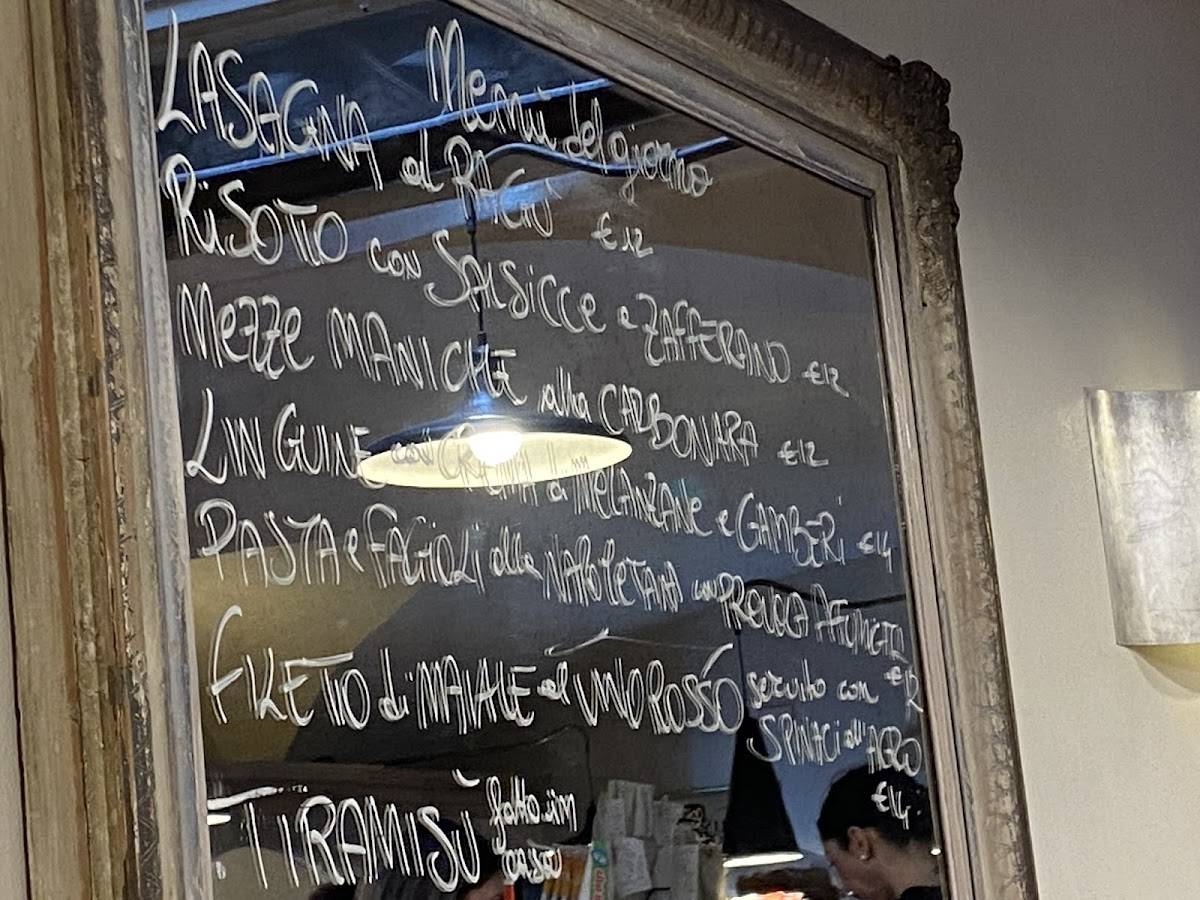 Menù del giorno
LASAGNA al RAGÙ €12
RiSOTTO con SALSICCE e ZAFFERANO €12
MeZZe MANICHE alla CARBONARA €12
LINGUINE con CREMA di MELANZANE e GAMBERi €14
PASTA e FAGIOLI alla NAPOLETANA con PROVOLA AFFUMICATA €12
FILETTO di MAIALE al VINO ROSSO servito con
SPINACI all'AGRO
€14
TIRAMISÙ fatto in
casa